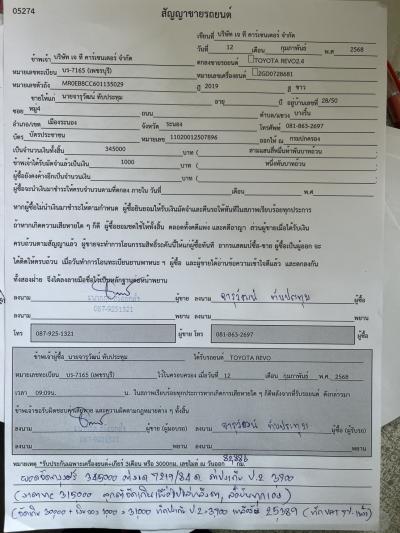 05274
สัญญาขายรถยนต์
เขียนที่ บริษัท เจ ที คาร์เซนเตอร์ จำกัด
วันที่ 12 เดือน กุมภาพันธ์ พ.ศ. 2568
ข้าพเจ้า บริษัท เจ ที คาร์เซนเตอร์ จำกัด ตกลงขายรถยนต์ TOYOTA REVO2.4
หมายเลขทะเบียน บร-7165 (เพชรบุรี) หมายเลขเครื่องยนต์ 2GD0728681
หมายเลขตัวถัง MR0EB8CC601135029 ปี 2019 สี ขาว
ขายให้แก่ นายจารุวัฒน์ ทับประทุม อายุ ปี อยู่บ้านเลขที่ 28/50
ซอย หมู่4 ถนน ตำบล/แขวง บางริ้น
อำเภอ/เขต เมืองระนอง จังหวัด ระนอง โทรศัพท์ 081-863-2697
บัตร บัตรประชาชน หมายเลข 11020012507896 ออกให้ ณ กรมปกครอง
เป็นจำนวนเงินทั้งสิ้น 345000 บาท ( สามแสนสี่หมื่นห้าพันบาทถ้วน
ข้าพเจ้าได้รับมัดจำแล้วเป็นเงิน 1000 บาท ( หนึ่งพันบาทถ้วน
ผู้ซื้อยังคงค้างอีกเป็นจำนวนเงิน บาท (
ผู้ซื้อจะนำเงินมาชำระให้ครบจำนวนตามที่ตกลง ภายใน วันที่ เดือน พ.ศ.
หากผู้ซื้อไม่นำเงินมาชำระให้ตามกำหนด ผู้ซื้อยินยอมให้ริบเงินมัดจำและคืนรถให้ทันทีในสภาพเรียบร้อยทุกประการ
ถ้าหากเกิดความเสียหายใด ๆ ก็ดี ผู้ซื้อยอมชดใช้ให้ทั้งสิ้น ตลอดทั้งคดีแพ่ง และคดีอาญา ส่วนผู้ขายเมื่อได้รับเงิน
ครบถ้วนตามสัญญาแล้ว ผู้ขายจะทำการโอนกรรมสิทธิ์รถคันนี้ให้แก่ผู้ซื้อทันที
ได้ติดให้ครบถ้วน เมื่อวันทำการโอนทะเบียนยานพาหนะ ๆ ผู้ซื้อ และผู้ขายได้อ่านข้อความเข้าใจดีแล้ว และตกลงกัน
ทั้งสองฝ่าย จึงได้ลงลายมือชื่อไว้เป็นหลักฐานต่อหน้าพยาน
ลงนาม ผู้ขาย ลงนาม จารุวัฒน์ ทับประทุม ผู้ซื้อ
087-925-1321
ลงนาม พยาน ลงนาม พยาน
โทร 087-925-1321 ผู้ขาย โทร 081-863-2697 ผู้ซื้อ
ข้าพเจ้าผู้ซื้อ นายจารุวัฒน์ ทับประทุม ได้รับรถยนต์ TOYOTA REVO
หมายเลขทะเบียน บร-7165 (เพชรบุรี) ไว้ในครอบครอง เมื่อวันที่ 12 เดือน กุมภาพันธ์ พ.ศ. 2568
เวลา 09:09น. น. ในสภาพเรียบร้อยทุกประการหากเกิดการเสียหายใด ๆ ก็ดีหลังจากที่รับรถยนต์ ดังกล่าวมา
ข้าพเจ้าขอรับผิดชอบ และความผิดตามกฎหมายต่าง ๆ ทั้งสิ้น
ลงนาม ผู้ขาย (ผู้มอบรถ) ลงนาม จารุวัฒน์ ทับประทุม ผู้ซื้อ (ผู้รับรถ)
087-925-1321
ลงนาม พยาน ลงนาม พยาน
หมายเหตุ *รับประกันเฉพาะเครื่องยนต์+เกียร์ 3เดือน หรือ 3000กม. เลขไมล์ ณ วันออก กม.
345000 7219/84 ป.2 3900
315000
30000 + 1000 = 31000 ป.2 = 3700 25389